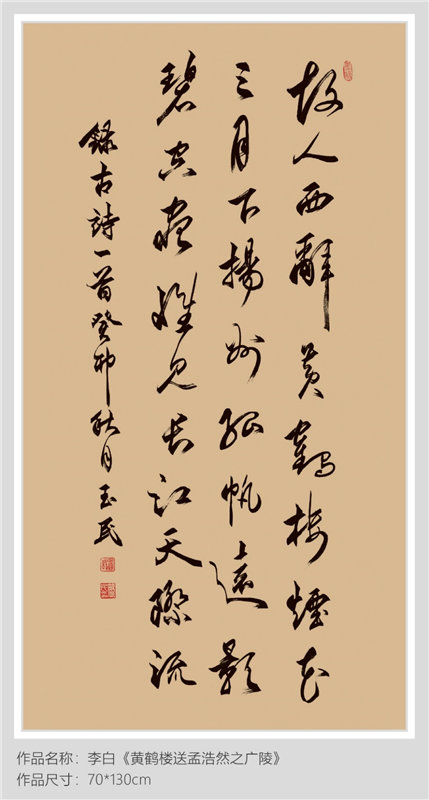 故人西辭黄鶴樓煙花
三月下揚州孤帆遠影
碧空盡唯見長江天際流
錄古詩一首癸卯秋月玉民
作品名称：李白《黄鹤楼送孟浩然之广陵》
作品尺寸：70*130cm